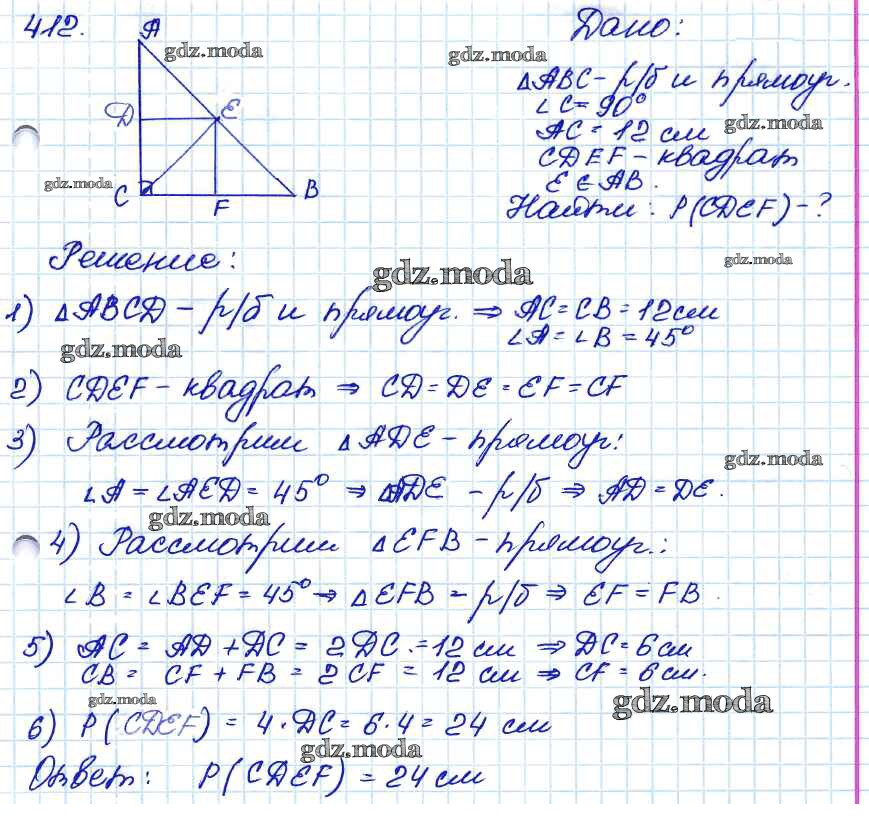 412.
A
D
E
C
F
B
Дано:
△ABC – р/б и прямоуг.
∠C = 90°
AC = 12 см
CDEF – квадрат
E ∈ AB.
Найти: P(CDEF) – ?
Решение:
1) △ABCD – р/б и прямоуг. ⇒ AC = CB = 12 см
∠A = ∠B = 45°
2) CDEF – квадрат ⇒ CD = DE = EF = CF
3) Рассмотрим △ADE – прямоуг:
∠A = ∠AED = 45° ⇒ △ADE – р/б ⇒ AD = DE.
4) Рассмотрим △EFB – прямоуг.:
∠B = ∠BEF = 45° → △EFB – р/б ⇒ EF = FB.
5) AC = AD + DC = 2DC = 12 см ⇒ DC = 6 см
CB = CF + FB = 2CF = 12 см ⇒ CF = 6 см.
6) P(CDEF) = 4·DC = 6·4 = 24 см
Ответ: P(CDEF) = 24 см
gdz.moda
gdz.moda
gdz.moda
gdz.moda
gdz.moda
gdz.moda
gdz.moda
gdz.moda
gdz.moda
gdz.moda
gdz.moda
gdz.moda